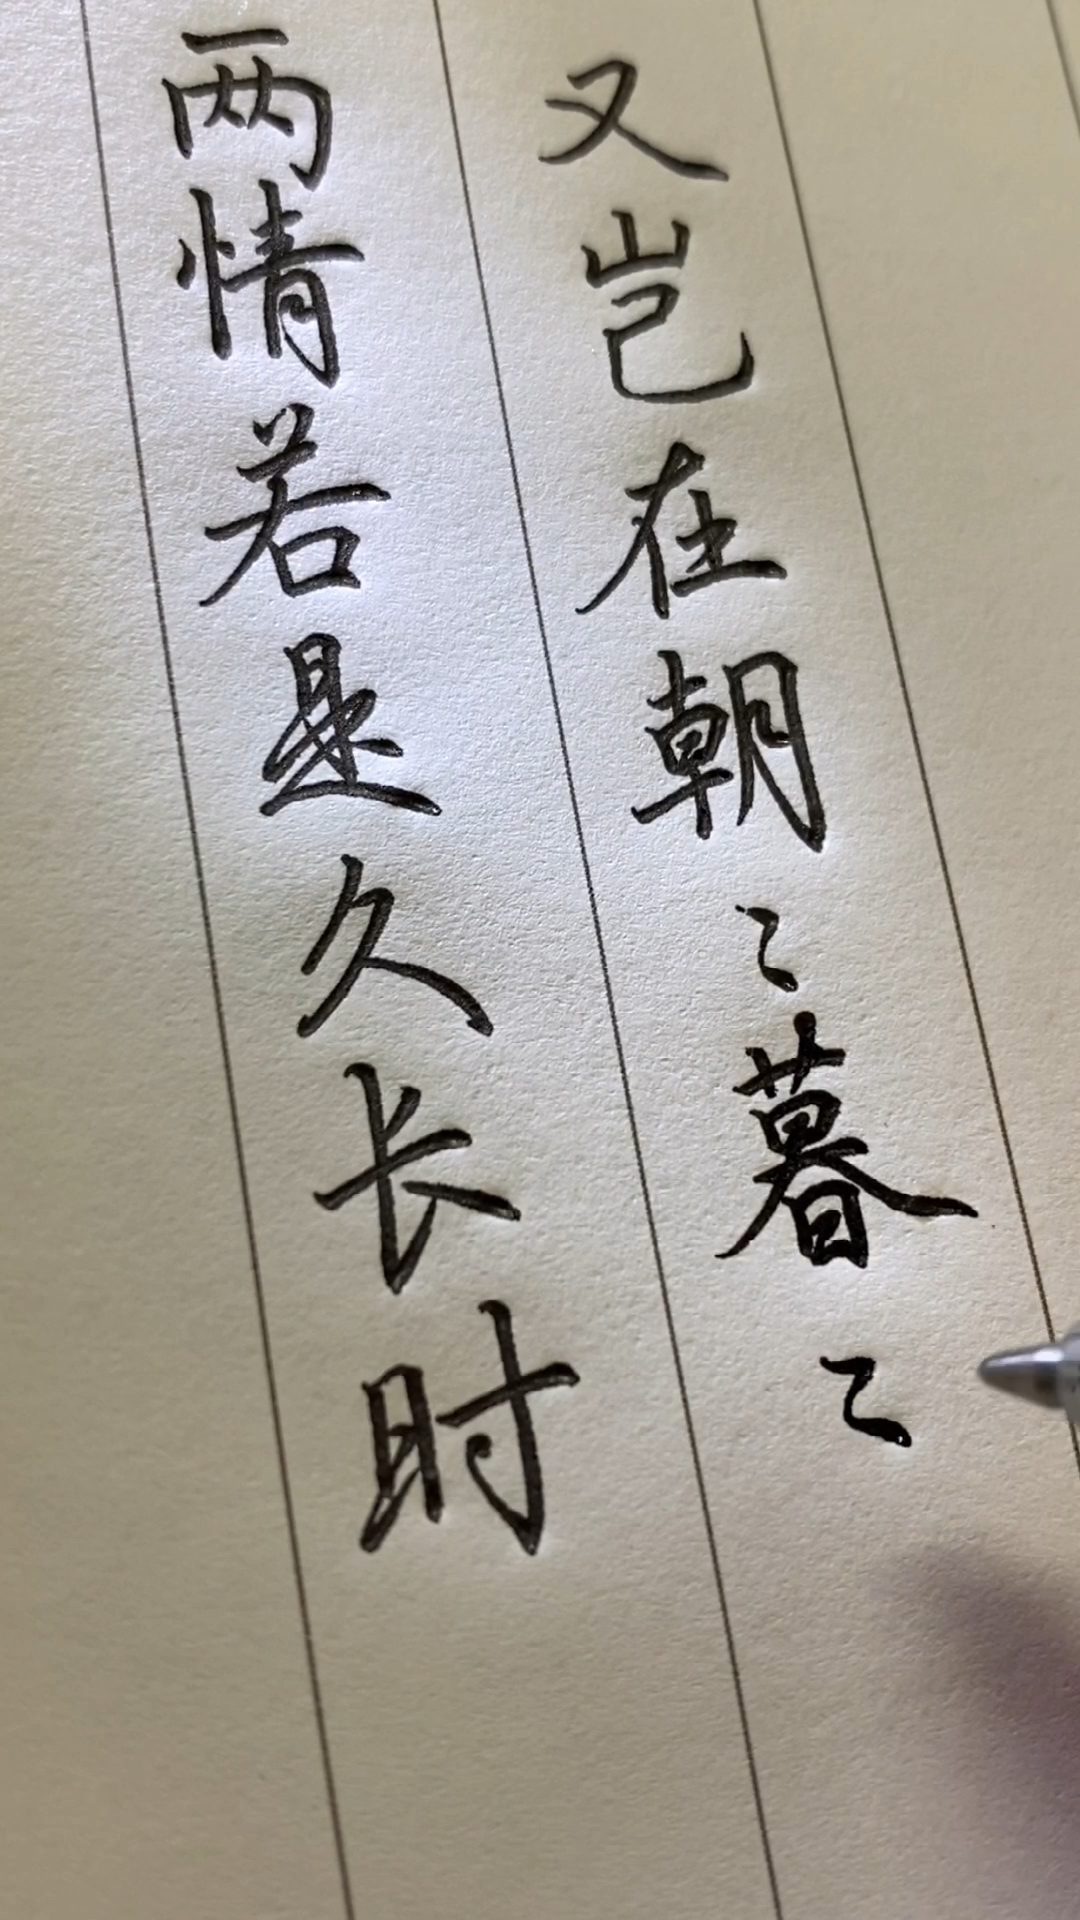 两情若是久长时
又岂在朝〻暮〻